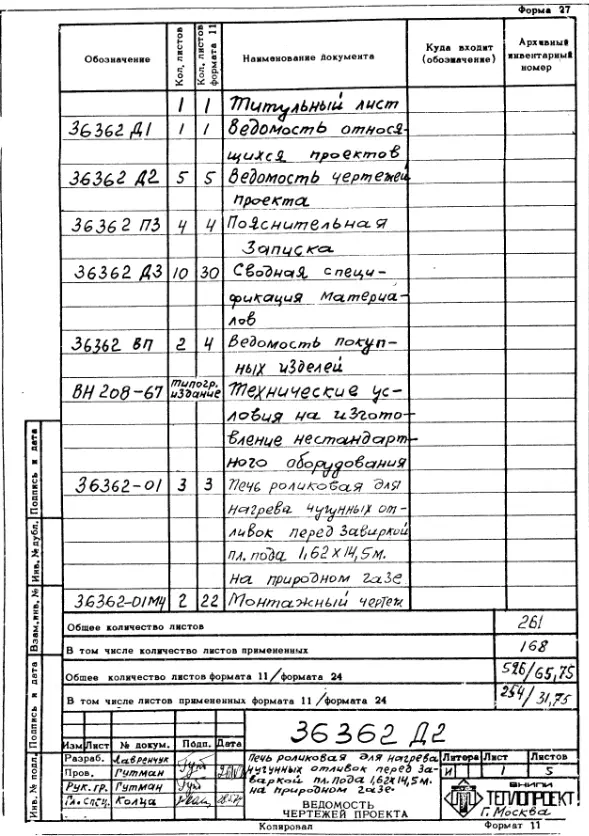 Форма 27
Обозначение
Кол. листов
Кол. листов формата 11
Наименование документа
Куда входит (обозначение)
Архивный инвентарный номер
1 1 Титульный лист
36362 Д1 1 1 Ведомость относя-
щихся проектов
36362 Д2 5 5 Ведомость чертежей
проекта
36362 ПЗ 4 4 Пояснительная
Записка
36362 Д3 10 30 Сводная специ-
фикация материа-
лов
36362 ВП 2 4 Ведомость покуп-
ных изделей
ВН 208-67 типогр. издание Технические ус-
ловия на изгото-
вление нестандарт-
ного оборудования
36362-01 3 3 Печь роликовая для
нагрева чугунных от-
ливок перед Заваркой
пл. пода 1,62х14,5м.
на природном газе
36362-01МЧ 2 22 Монтажный чертеж
Общее количество листов 261
В том числе количество листов примененных 168
Общее количество листов формата 11/формата 24 526/65,75
В том числе листов примененных формата 11/формата 24 254/31,75
36362 Д2
Изм Лист № докум. Подп. Дата
Разраб. Лавренчук
Пров. Гутман
Рук. гр. Гутман
Гл. спец. Колца
Печь роликовая для нагрева
чугунных отливок перед За-
варкой пл. пода 1,62х14,5м.
на природном газе.
ВЕДОМОСТЬ
ЧЕРТЕЖЕЙ ПРОЕКТА
Литера Лист Листов
И 1 5
ВНИПИ
ТЕПЛОПРОЕКТ
г. Москва
Копировал Формат 11
Подпись и дата
Инв. № дубл.
Взам. инв. №
Подпись и дата
Инв. № подл.